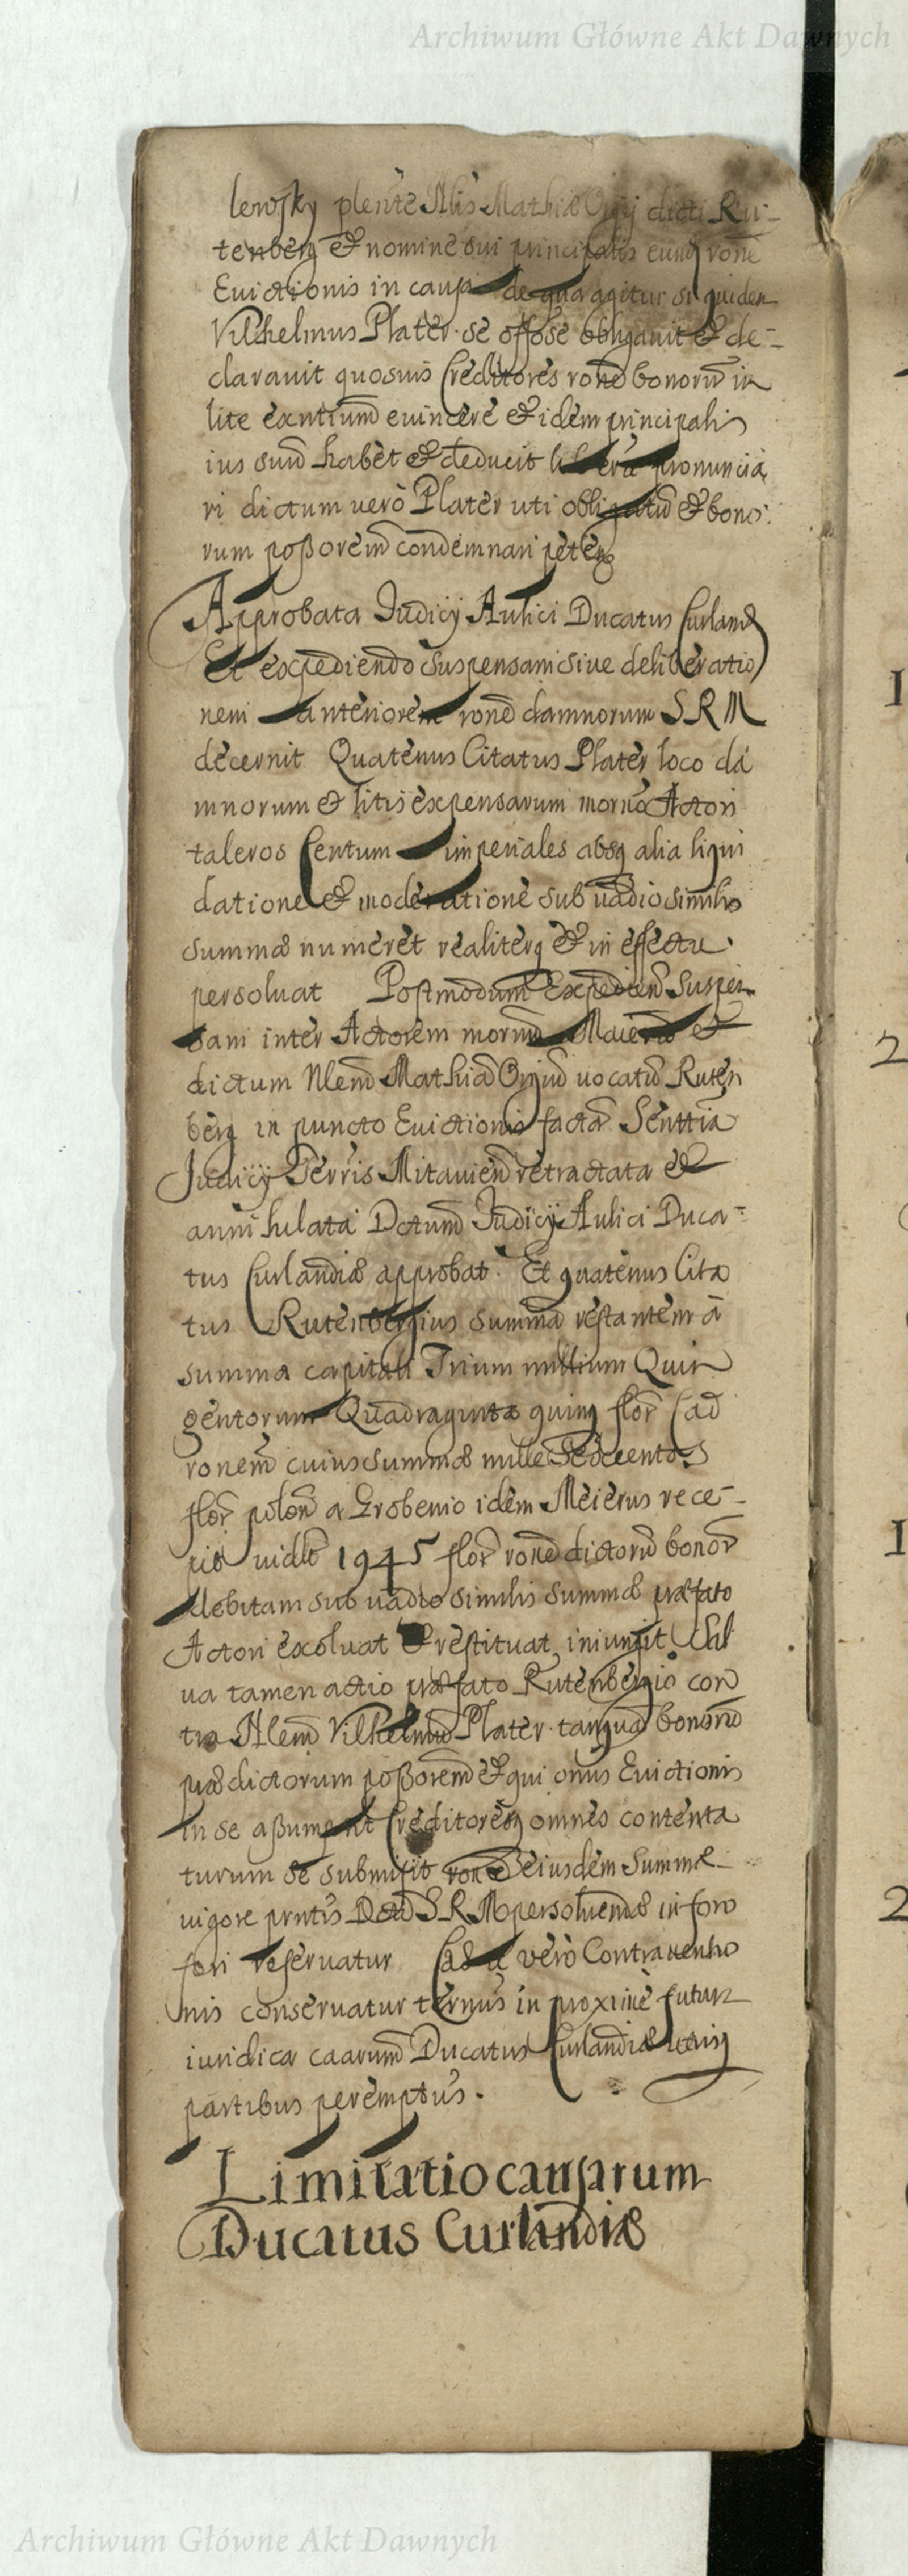 Archiwum Główne Akt Dawnych
lewsky plente Nlis Mathiæ dicti Ru-
tenberg & nomine sui principalis rone
Euictionis in causa de qua agitur siquiden
Vilhelmus Plater se offose obligauit & de-
clarauit quosuis Creditores rone bonorũ in
lite exntium euincere & idem principalis
ius suũ habet & deducit pronuncia
ri dictum verò Plater uti obligatũ & bono
rum poßorem condemnari petens
Approbata Iudicij Aulici Ducatus Curland
Et expediendo suspensam siue deliberatio
nem anteriorem rone damnorum S R M
decernit Quatenus Citatus Plater loco da
mnorum & litis expensarum Actori
taleros Centum imperiales absq alia liqui
datione & moderatione sub uadio similis
summæ numeret realiterq & in effectu
persoluat Postmodum Expediend Suspen
sam inter Actorem & 
dictum Nlem Mathiã uocatũ Ruten
berg in puncto Euictionis factã Senttia
Iudicij Terris Mitauien retractata &
annihilata Dctum Iudicij Aulici Duca-
tus Curlandiæ approbat. Et quatenus Cita
tus Rutenbergius summã restantem à
summa capitali Trium millium Quin
gentorum Quadraginta quinq flor (ad
ronem cuius summæ mille Sexcentos
flor polon a Grobenio idem Meierus rece-
pit uidlt 1945 flor rone dictorũ bonor
debitam sub uadio similis summæ præfato
Actori exoluat & restituat iniunxit Sal
ua tamen actio præfato Rutenbergio con
tra Nlem Vilhelmũ Plater tanquã bonorũ
prædictorum poßorem & qui onus Euictionis
in se aßumpsit Creditoresq omnes contenta
turum se submisit rone eiusdem summæ
uigore prntis Dcti S R M persoluendæ in foro
fori reseruatur Causa verò Contrauentio
nis conseruatur termus in proxime futura
iuridica caarum Ducatus Curlandiæ
partibus peremptus.
Limitatio causarum
Ducatus Curlandiæ
1
2
1
2
Archiwum Główne Akt Dawnych